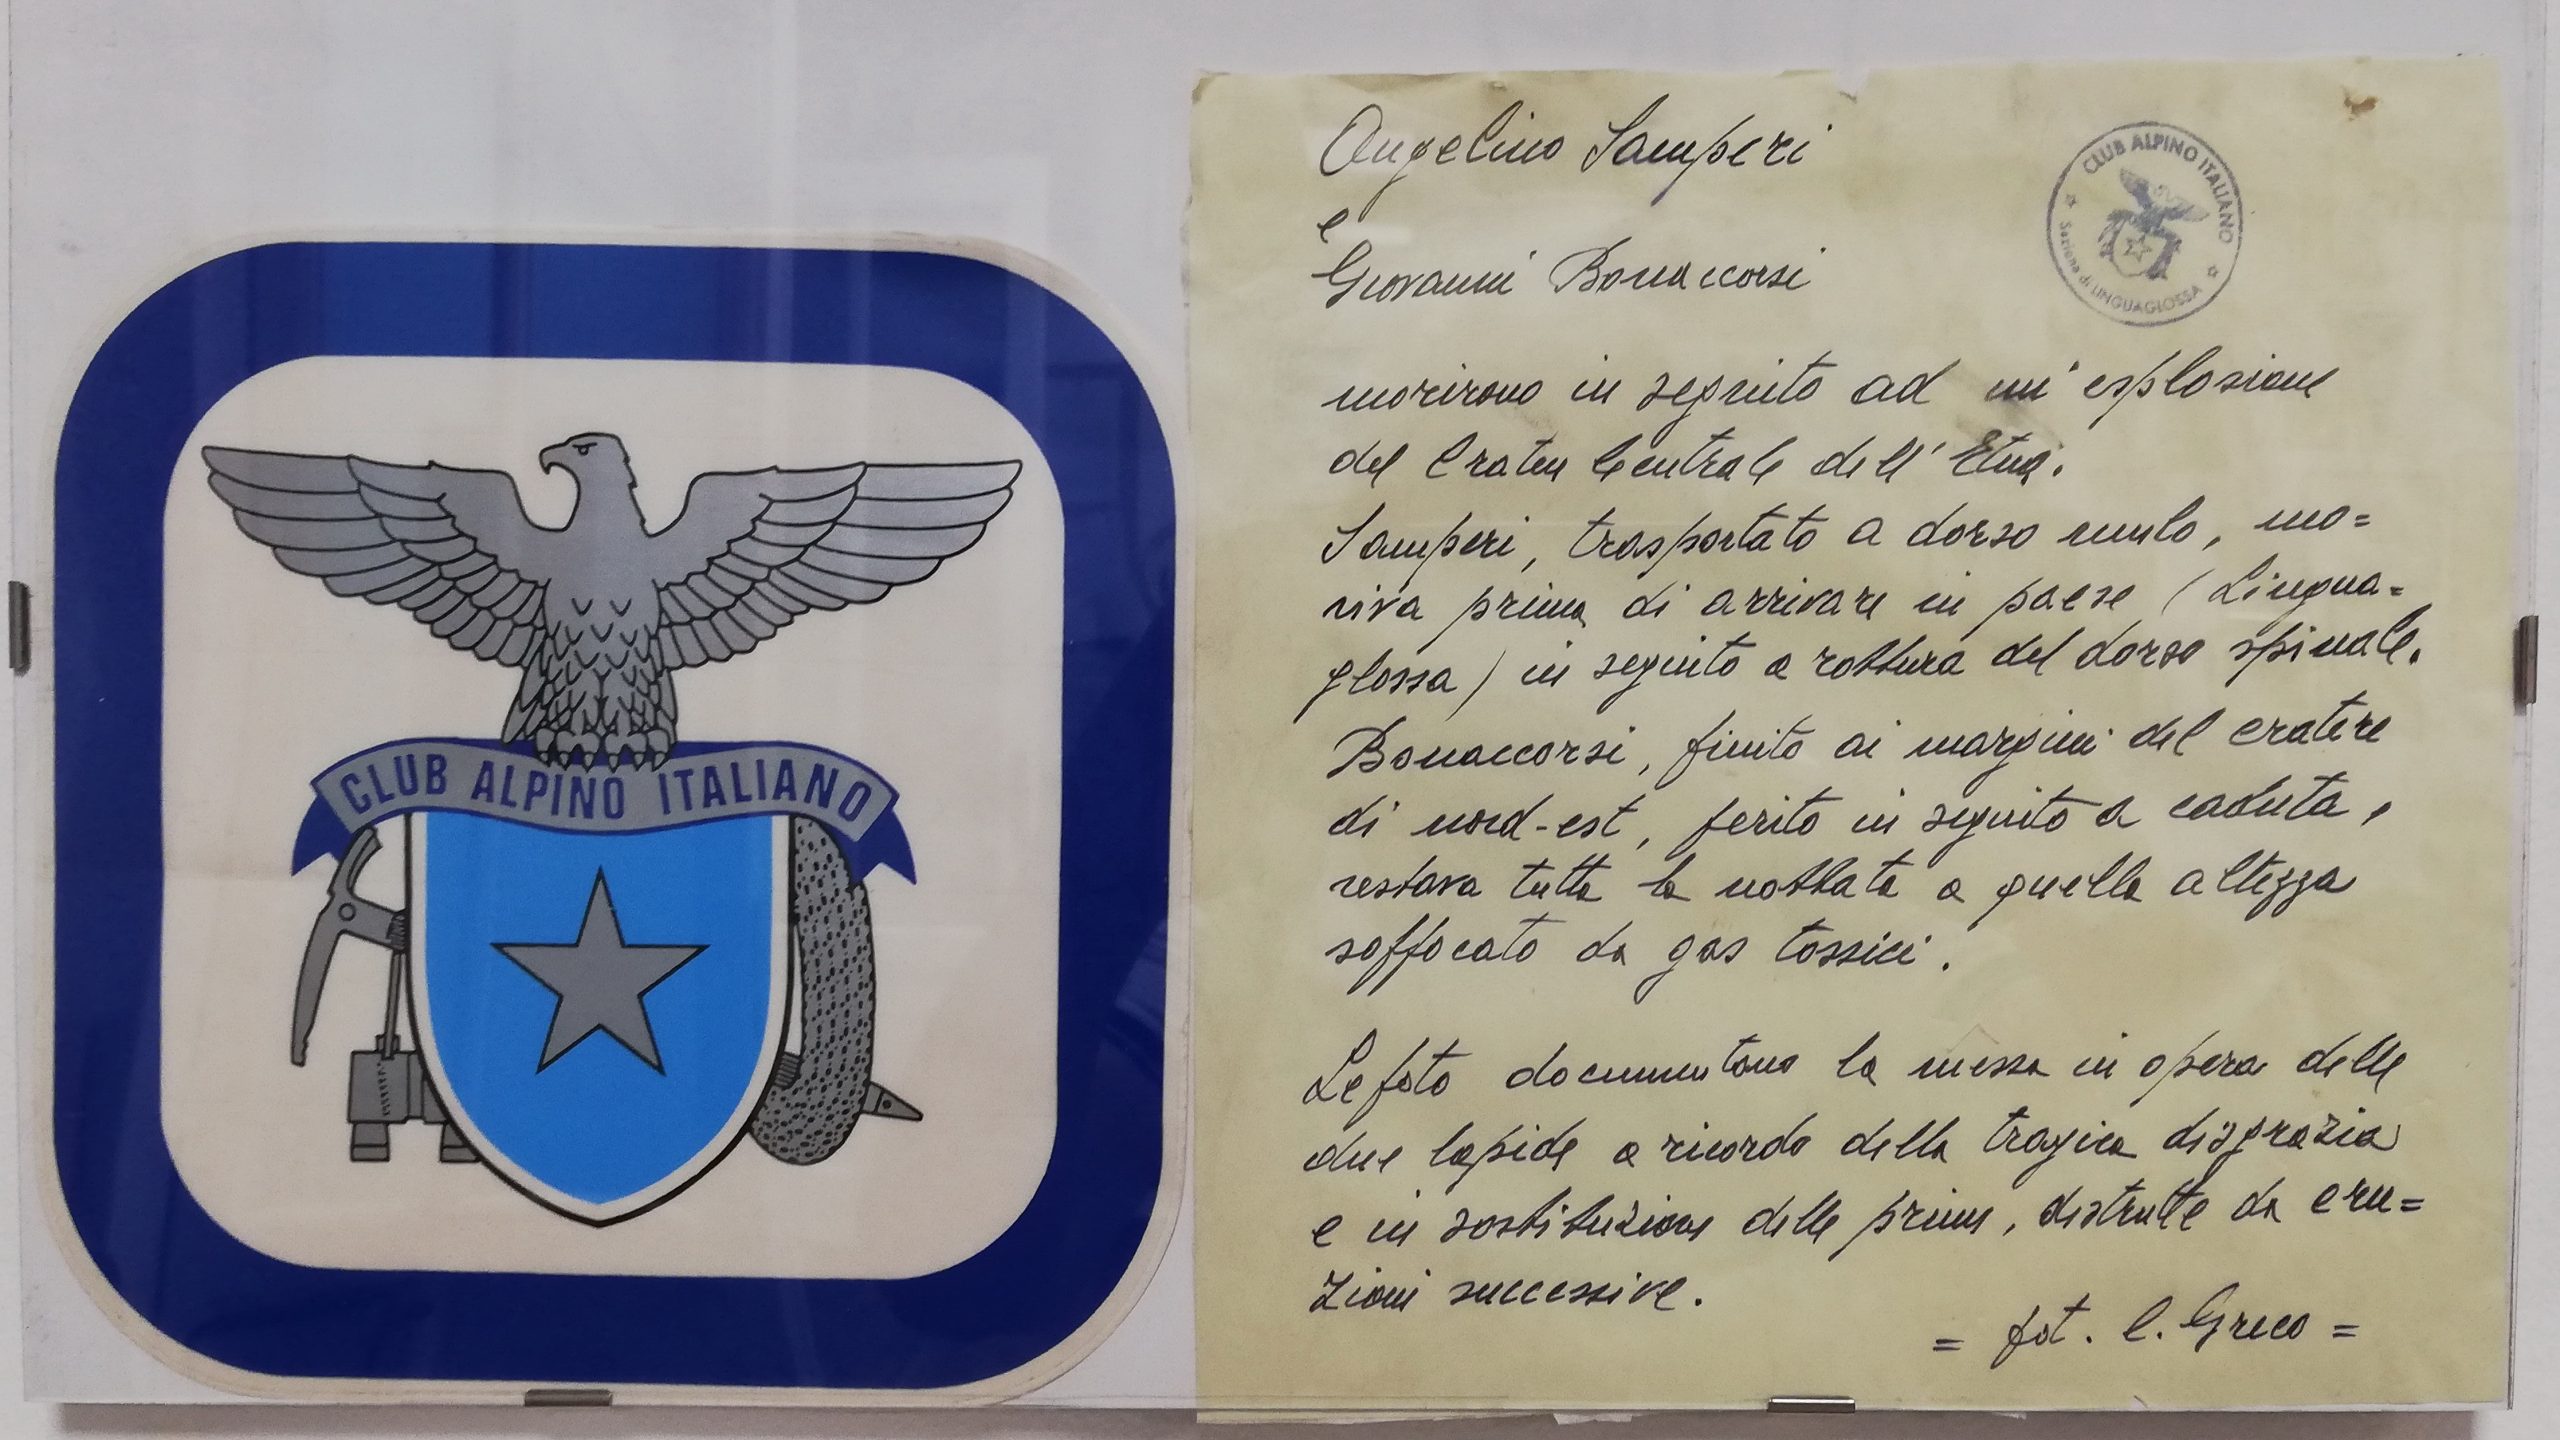 CLUB ALPINO ITALIANO
Angelino Samperi
e
Giovanni Bonaccorsi
CLUB ALPINO ITALIANO
Sezione di LINGUAGLOSSA
morirono in seguito ad un' esplosione
del Cratere Centrale dell' Etna.
Samperi, trasportato a dorso mulo, mo=
riva prima di arrivare in paese (Lingua=
glossa) in seguito a rottura del dorso spinale.
Bonaccorsi, finito ai margini del cratere
di nord-est, ferito in seguito a caduta,
restava tutta la nottata a quella altezza
soffocato da gas tossici.
Le foto documentano la messa in opera delle
due lapide a ricordo della tragica disgrazia
e in sostituzione delle prime, distrutte da eru=
zioni successive.
= fot. C. Greco =